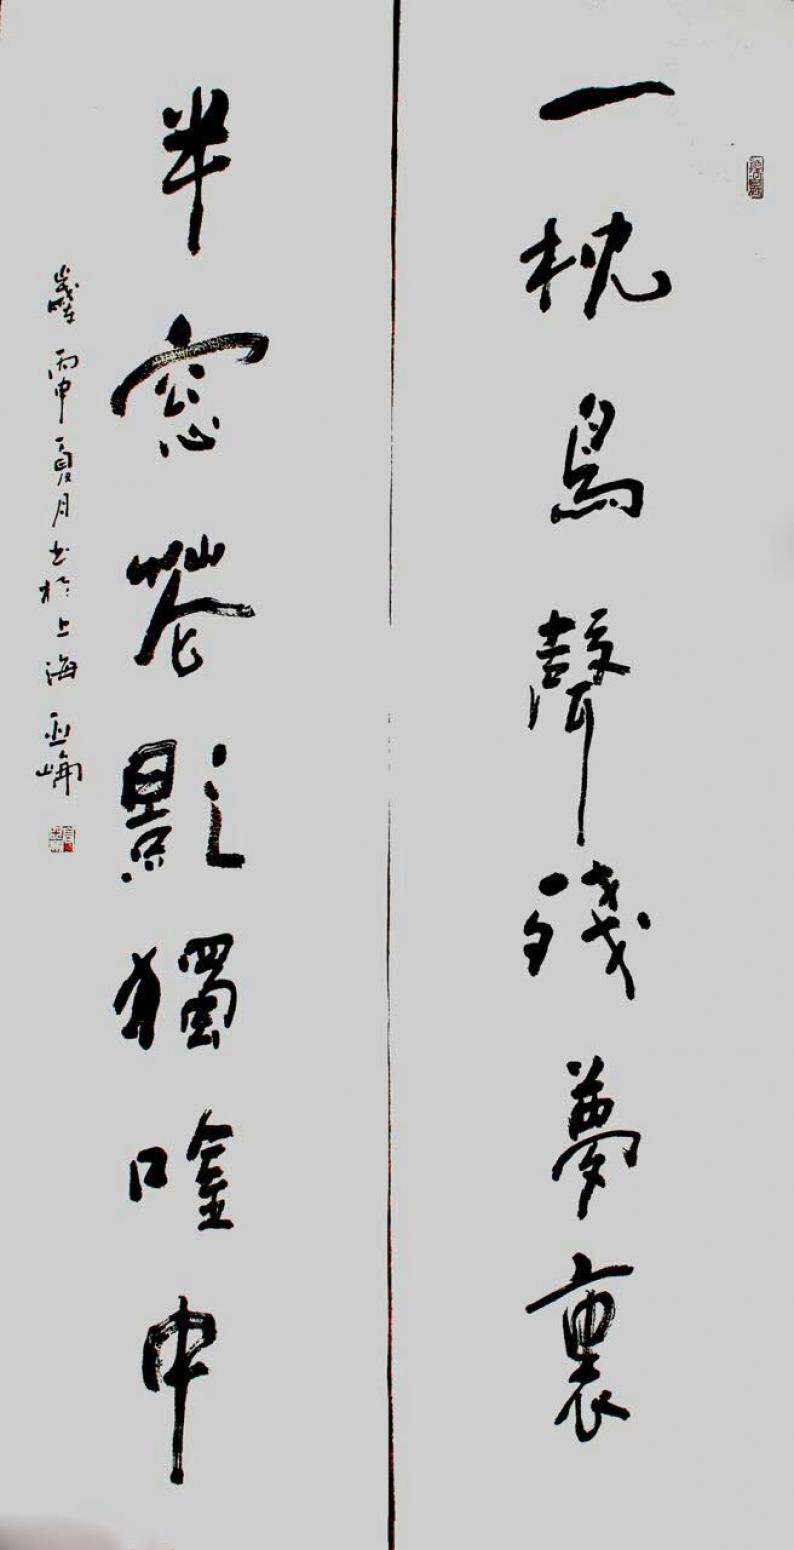 一枕鳥聲殘夢裏
半窓花影獨唫中
歲在丙申夏月书於上海